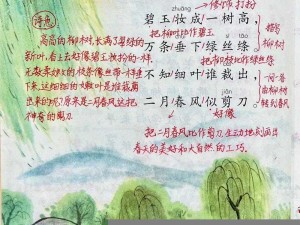 zhuāng
修饰 打扮
碧玉/妆成/一树高，
把柳树比作碧玉
万条/垂下/绿丝绦
把柳枝比作绿丝绦
不知/细叶/谁裁出
二月/春风/似剪刀
jiǎn
把二月春风比作剪刀，生动地刻画出
春天的美好和大自然的工巧。
诗意
高高的柳树，长满了翠绿的
新叶，看上去好像碧玉装扮的一样。
无数条
的枝条像丝带一样垂
下来，这细细的嫩叶是谁裁剪
出来的呢？原来是二月春风这把
神奇的剪刀
一问一答